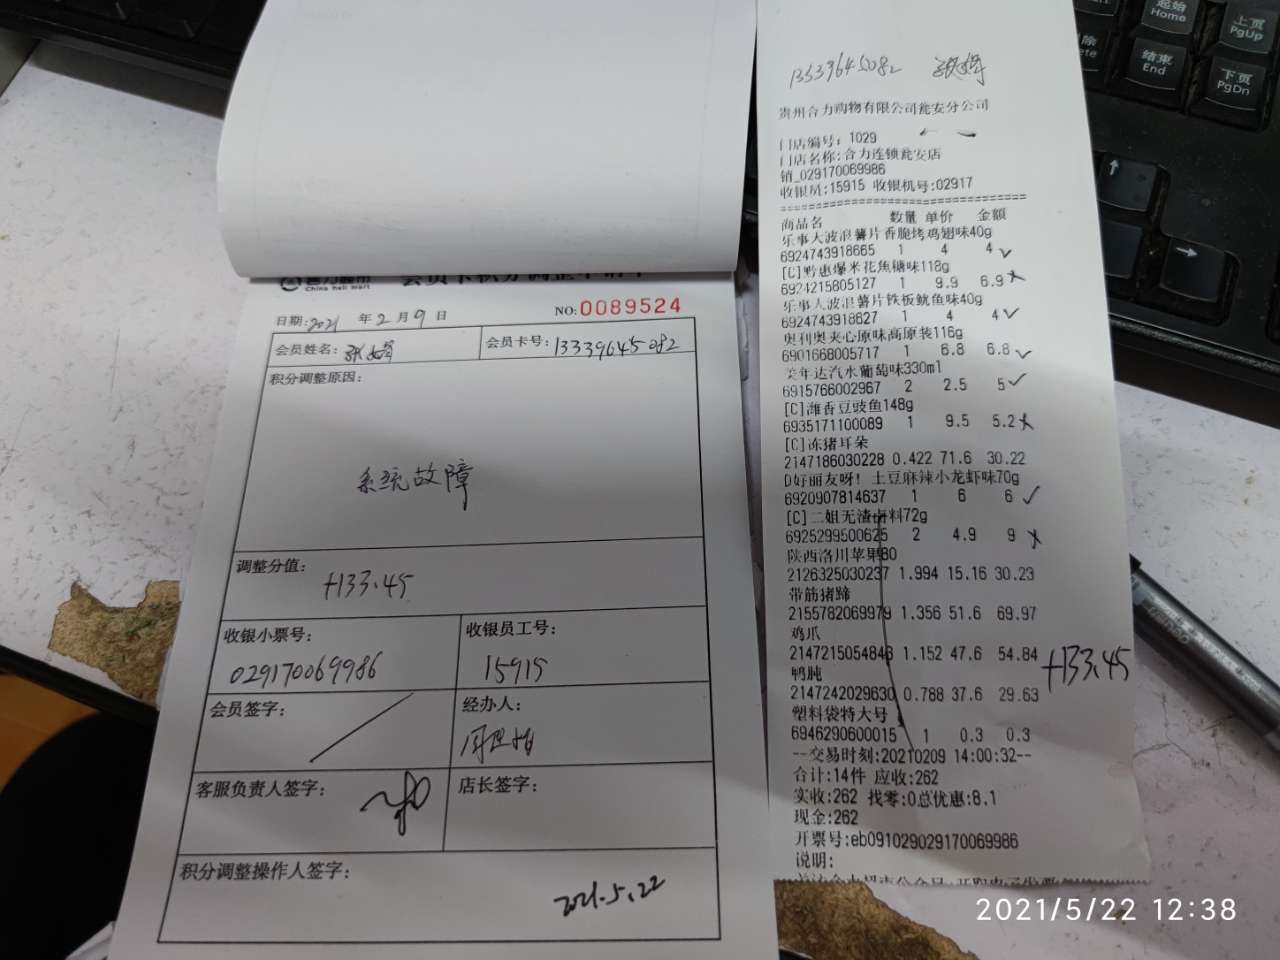 起始
Home
上页
PgUp
结束
End
下页
PgDn
China heli mart
日期:2021 年 2 月 9 日
NO:0089524
会员姓名:
会员卡号: 13339645082
积分调整原因:
系统故障
调整分值:
+133.45
收银小票号:
029170069986
收银员工号:
15915
会员签字:
经办人:
客服负责人签字:
店长签字:
积分调整操作人签字:
2021.5.22
13339645082
贵州合力购物有限公司瓮安分公司
门店编号: 1029
门店名称:合力连锁瓮安店
销_029170069986
收银员:15915 收银机号:02917
商品名 数量 单价 金额
乐事大波浪薯片香脆烤鸡翅味40g
6924743918665 1 4 4
[C]黔惠爆米花焦糖味118g
6924215805127 1 9.9 6.9
乐事大波浪薯片铁板鱿鱼味40g
6924743918627 1 4 4
奥利奥夹心原味高原装116g
6901668005717 1 6.8 6.8
美年达汽水葡萄味330ml
6915766002967 2 2.5 5
[C]潍香豆豉鱼148g
6935171100089 1 9.5 5.2
[C]冻猪耳朵
2147186030228 0.422 71.6 30.22
D好丽友呀! 土豆麻辣小龙虾味70g
6920907814637 1 6 6
[C]二姐无渣卤料72g
6925299500625 2 4.9 9
陕西洛川苹果80
2126325030237 1.994 15.16 30.23
带筋猪蹄
2155782069979 1.356 51.6 69.97
鸡爪
2147215054848 1.152 47.6 54.84
+133.45
鸭肫
2147242029630 0.788 37.6 29.63
塑料袋特大号
6946290600015 1 0.3 0.3
--交易时刻:20210209 14:00:32--
合计:14件 应收:262
实收:262 找零:0总优惠:8.1
现金:262
开票号:eb091029029170069986
说明:
2021/5/22 12:38